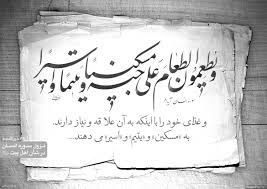 و یطعمون الطعام علی حبه مسکینا و یتیما و اسیرا
و غذای خود را با اینکه به آن علاقه و نیاز دارند،
به «مسکین» و «یتیم» و «اسیر» می دهند...
سوره انسان
در شأن اهل بیت